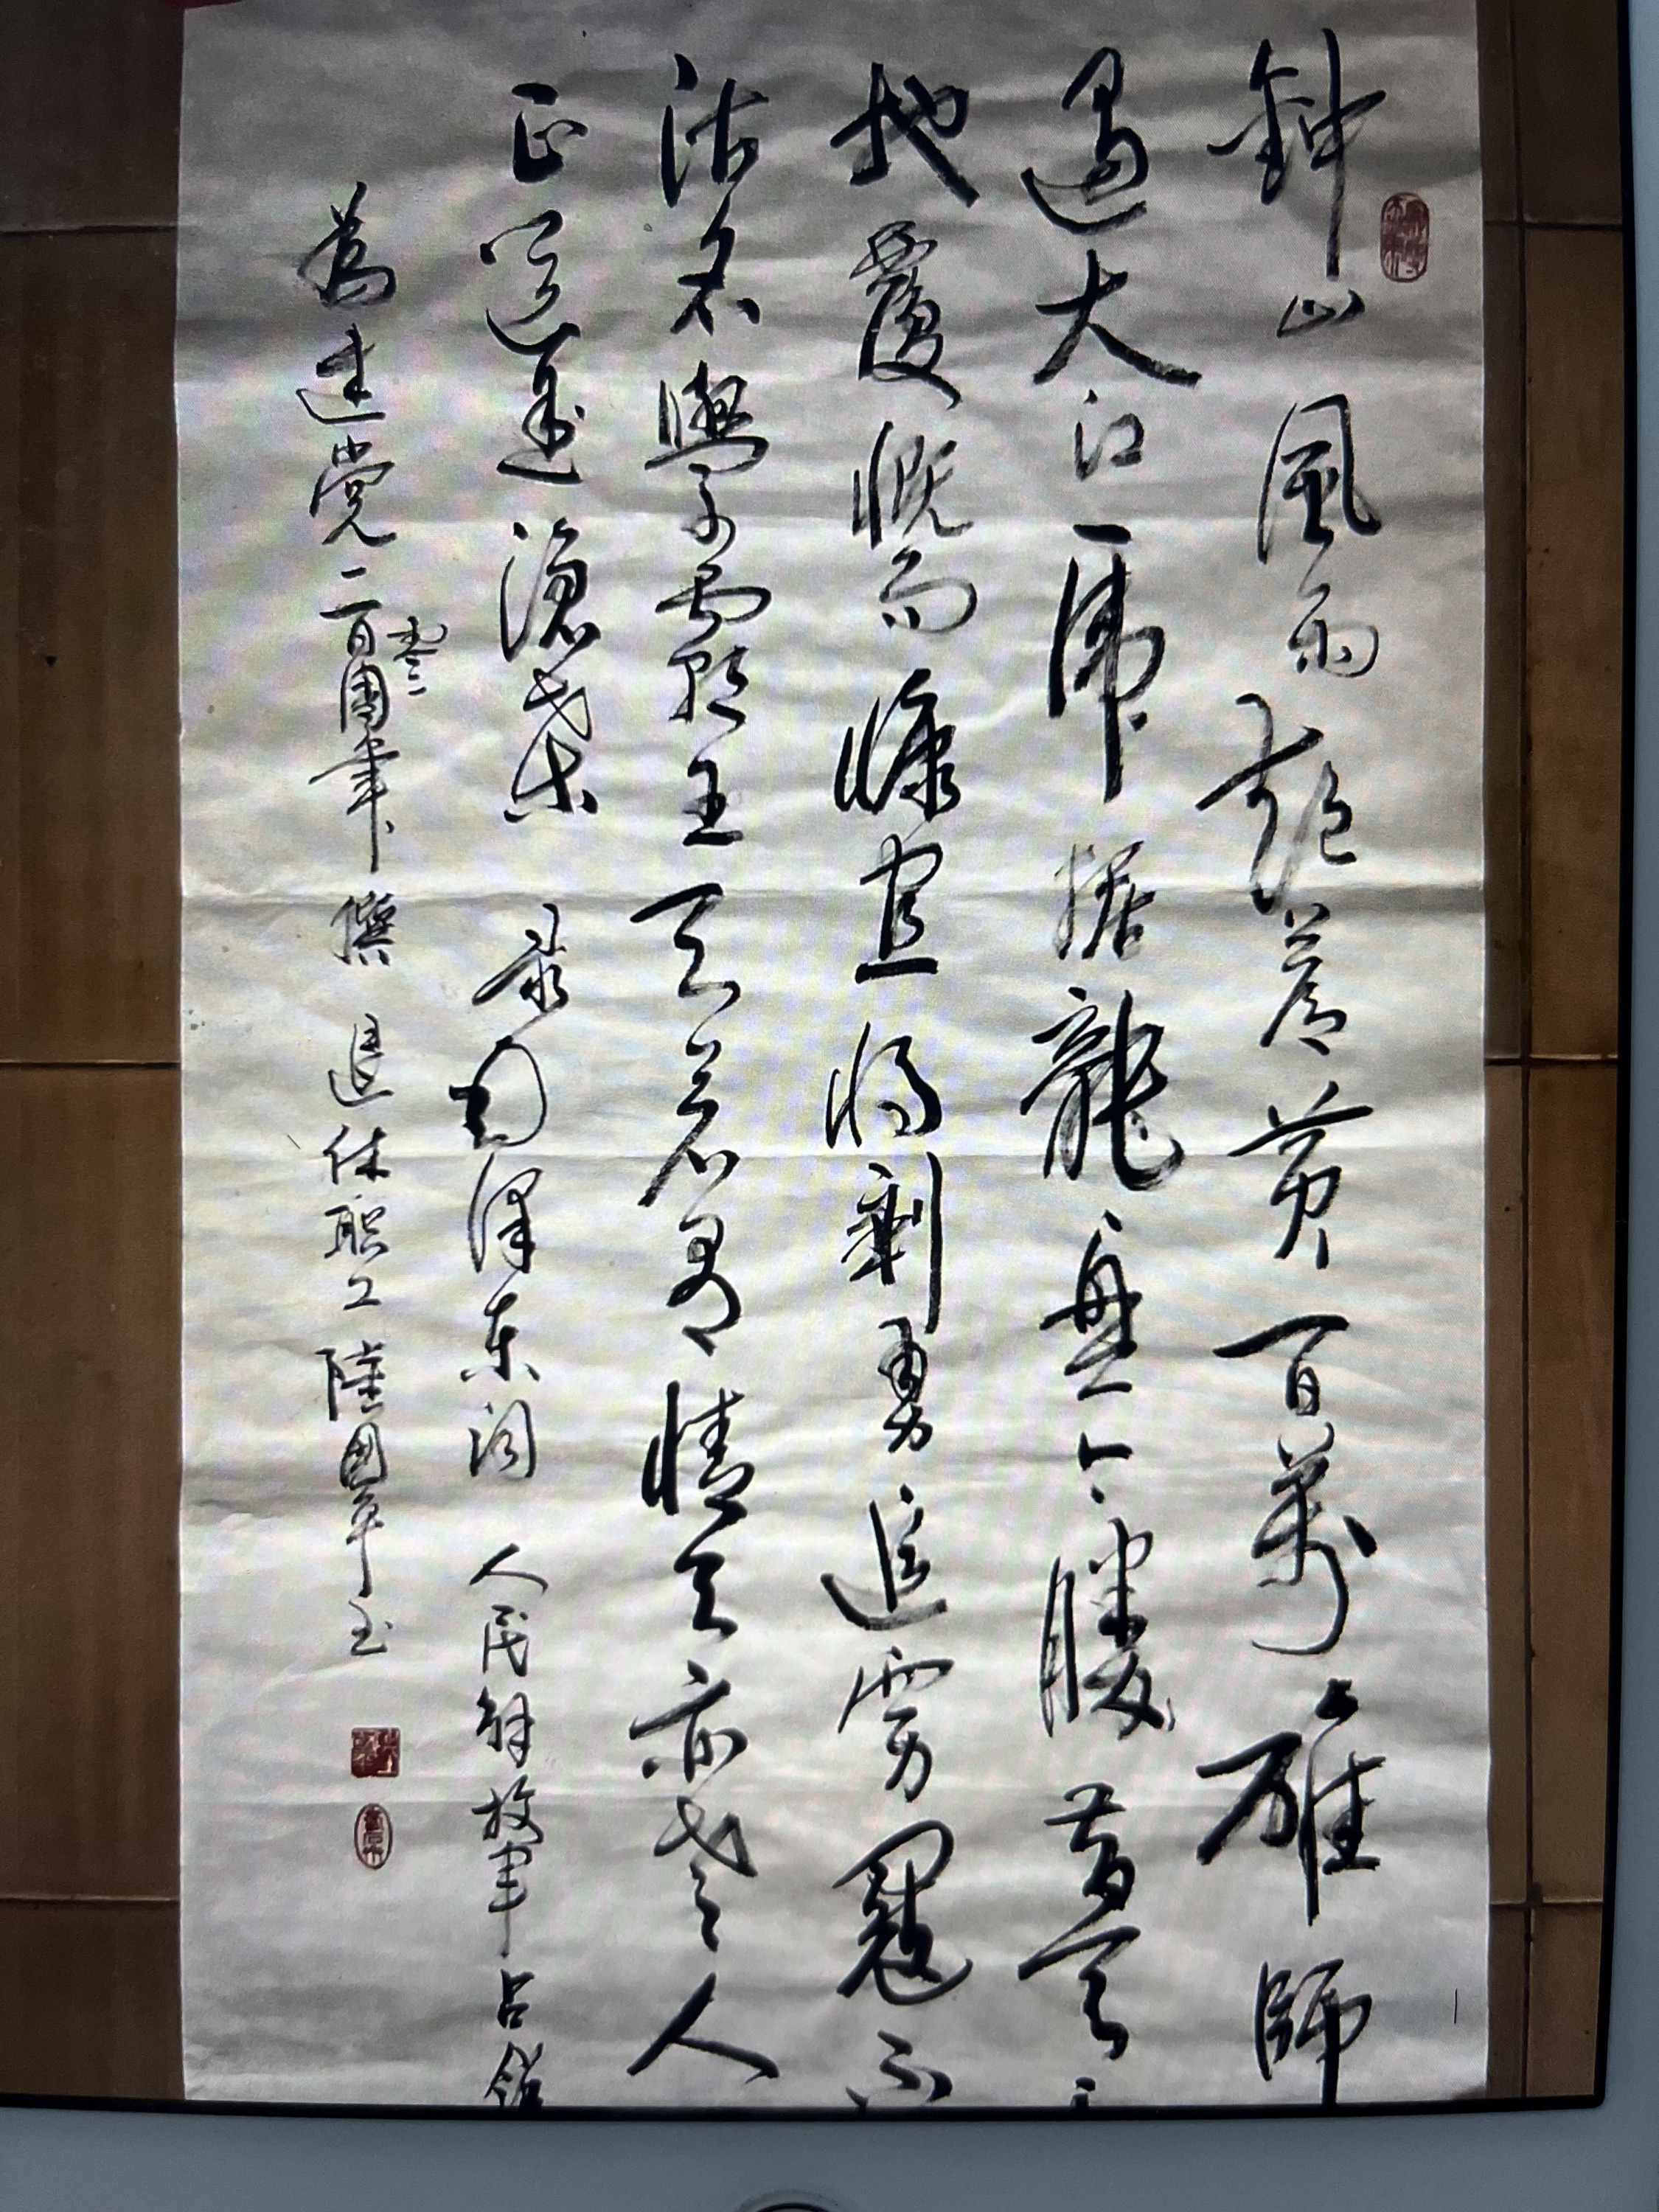 鈡山風雨起蒼黃百萬雄師
過大江虎踞龍盤今勝昔天
地覆慨而慷宜將剩勇追窮寇不
沽名學霸王天若有情天亦老人
正道是滄桑 录毛泽东詞 人民解放軍占領
為建党一百周年 退休职工陸國平书